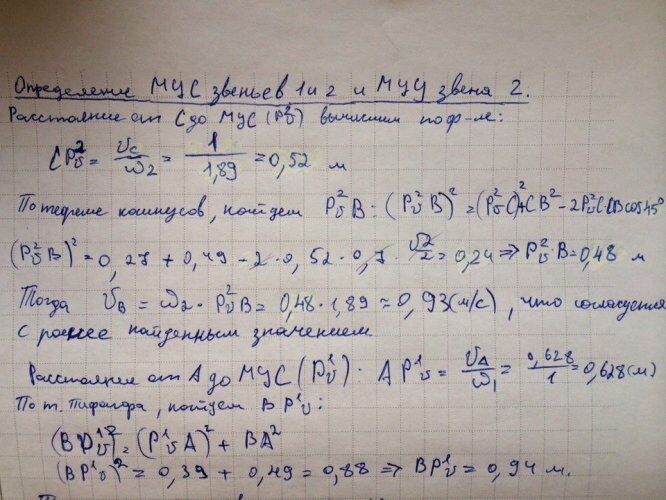 Определение МЦС звеньев 1 и 2 и МЦУ звена 2.
Расстояние от C до МЦС (P²υ) вычислим по ф-ле:
CP²υ = υc/ω₂ = 1/1,89 = 0,52 м
По теореме косинусов, найдем P²υB: (P²υB)² = (P²υC)² + CB² - 2P²υC·CB cos45°
(P²υB)² = 0,27 + 0,49 - 2·0,52·0,7·√2/2 = 0,24 ⇒ P²υB = 0,48 м
Тогда υB = ω₂·P²υB = 0,48·1,89 = 0,93 (м/с), что согласуется
с ранее найденным значением
Расстояние от A до МЦС (P¹υ): AP¹υ = υA/ω₁ = 0,628/1 = 0,628 (м)
По т. Пифагора, найдем BP¹υ:
(BP¹υ)² = (P¹υA)² + BA²
(BP¹υ)² = 0,39 + 0,49 = 0,88 ⇒ BP¹υ = 0,94 м.